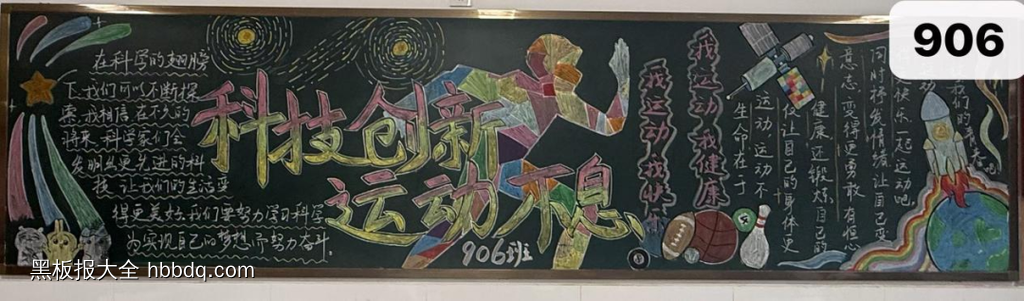 906
在科学的翅膀
下,我们可以不断探
索,我相信,在不久的
将来,科学家们会
发明出更先进的科
技,让我们的生活变
得更美好。我们要努力学习科学
为实现自己的梦想而努力奋斗。
科技创新
运动不息
906班
我运动 我健康
我运动 我快乐
生命在于
运动,运动不
仅让自己的身体更
健康,还锻炼自己的
意志,变得更勇敢,有恒心
同时抒发情绪,让自己变
快乐,一起运动吧
黑板报大全 hbbdq.com